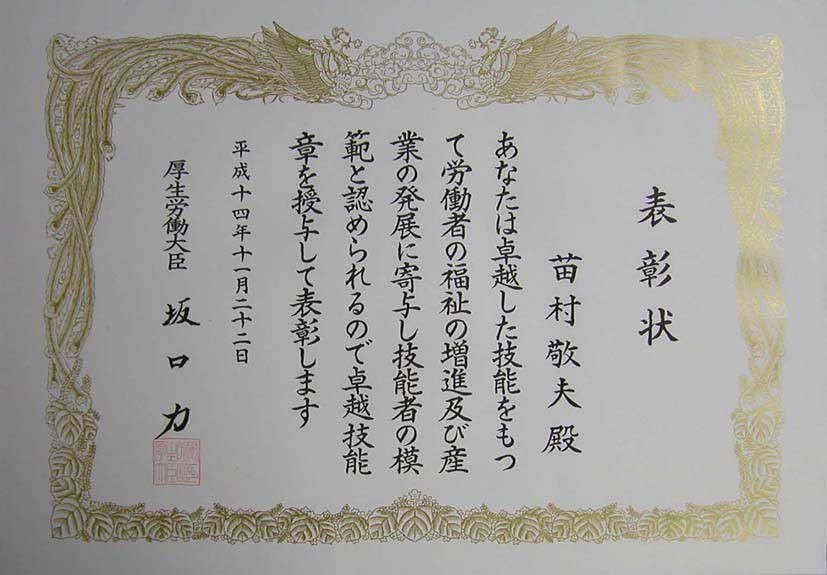 表彰状
苗村敬夫殿
あなたは卓越した技能をもつ
て労働者の福祉の増進及び産
業の発展に寄与し技能者の模
範と認められるので卓越技能
章を授与して表彰します
平成十四年十一月二十二日
厚生労働大臣 坂口力